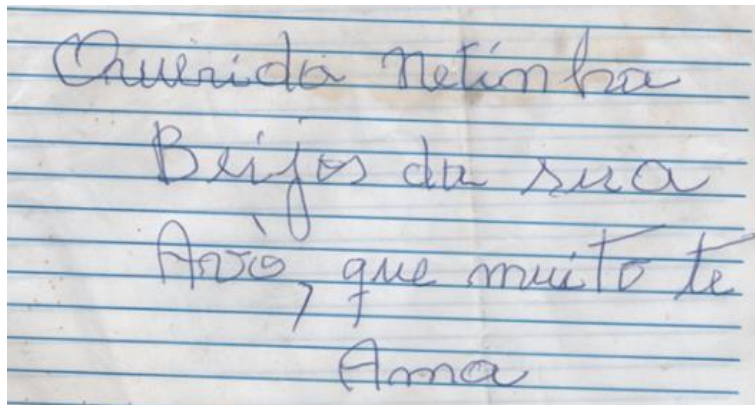 Querida Netinha
Beijos da sua
Avò, que muito te
Ama